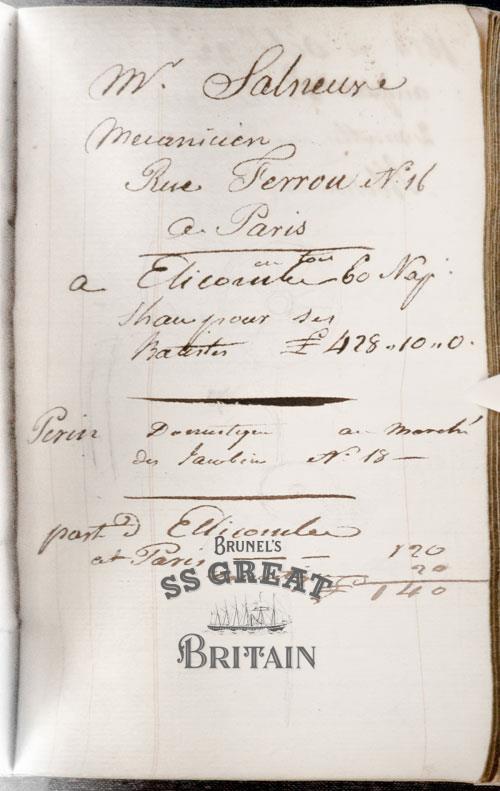 Mr. Salneuve
Mecanicien
Rue Ferrou N. 16
a Paris
en tou
a Elicombe 60 Nap.
pour ses
£ 428 „ 10 „ 0.
Perin Domestique au marché
des Jacobins No. 18 —
part d' Ellicombe
at Paris — 120
20
£ 140
BRUNEL'S
SS GREAT
BRITAIN